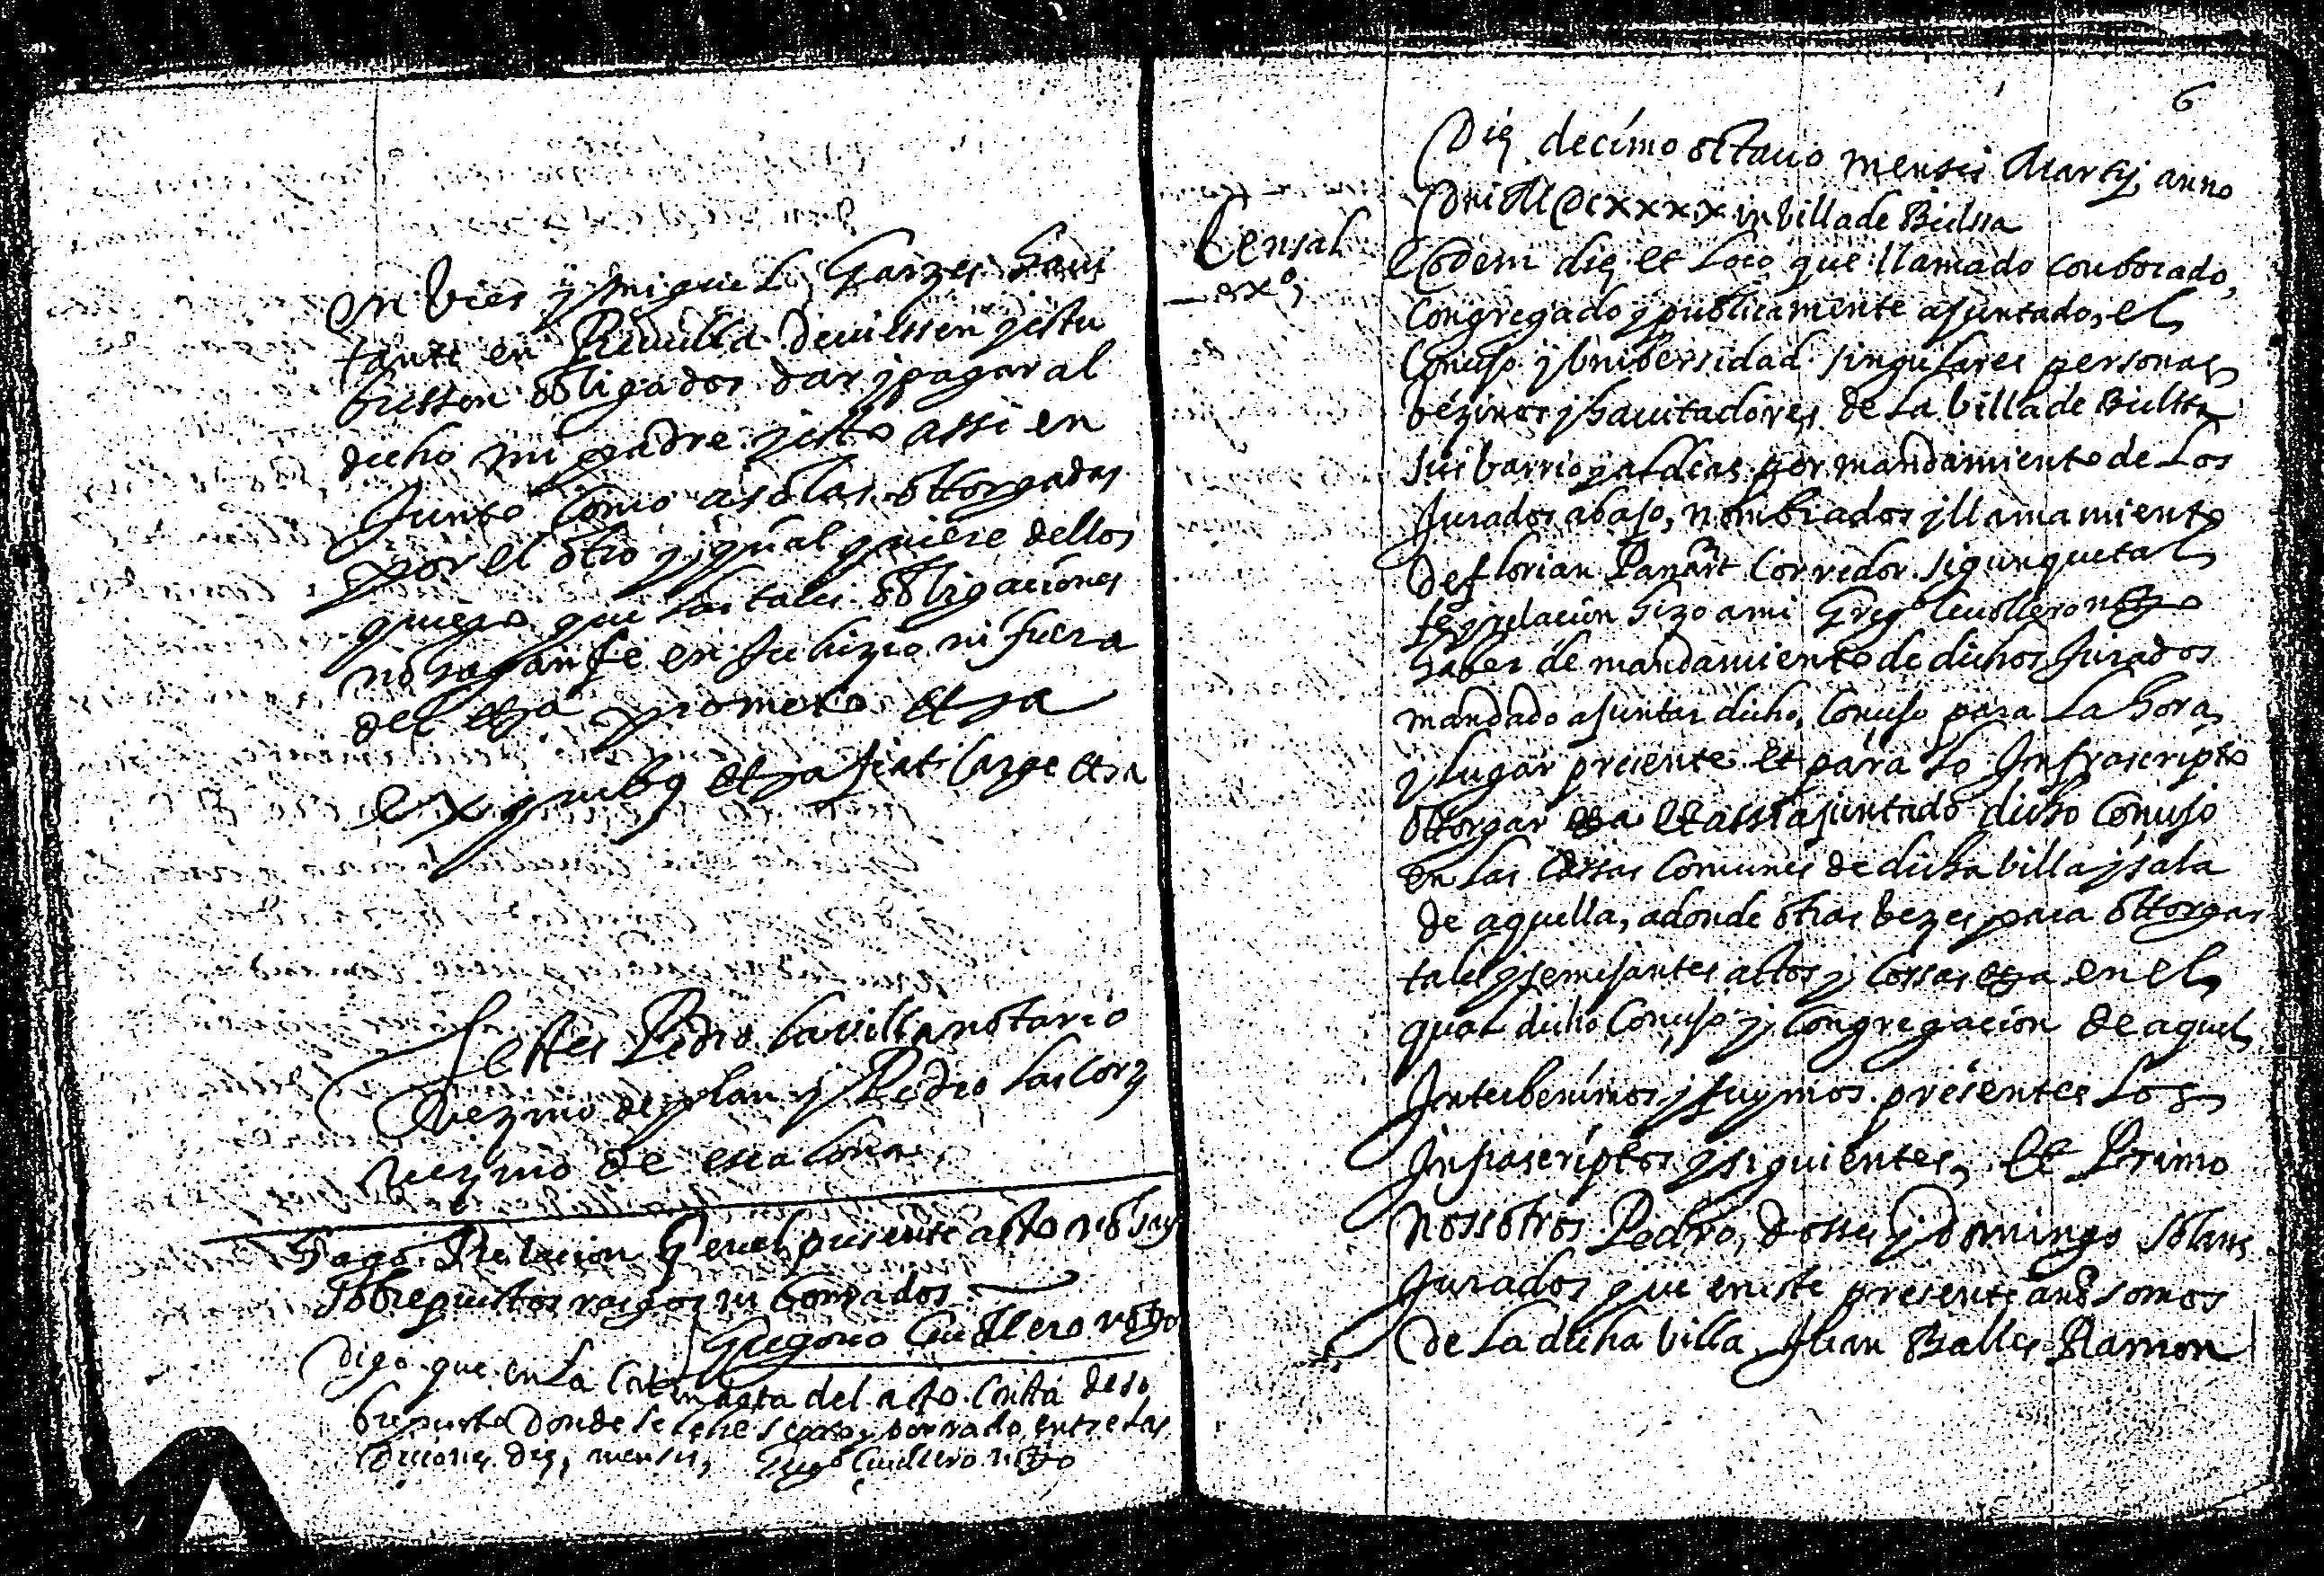 en bies y miguel Garzes havi
tante en Revilla deviessen y estu
biessen obligados dar y pagar al
dicho mi padre y esto assi en
Junto como a solas ottorgadas
por el otro y qual quiere dellos
quiero que las tales obligaciones
no hagan fe en Juhizio ni fuera
del etza prometo etza
ex quibus etza fiat large etza
Testes Pedro Lavilla notario
vezino de plan y Pedro Lascorz
vezino de escalona
Hago Relacion q en el presente acto no hay
sobrepuestos raigos ni borrados
Gregorio Cuillero noto
Digo que en la data del acto consta de so
brepuesto donde se lehe y borrado entre las
diciones die, mensis, Grego Cuillero noto
6
Die decimo octavo mensis Martij anno
Dni M DCxxxx in billa de Bielssa
Censal
exo
Eodem die et Loco que llamado conbocado,
congregado y publicamente ajuntado, el
Consejo y bnibersidad singulares personas
bezinos y havitadores de la billa de Bielssa
sus barrio y aldeas por mandamiento de Los
Jurados abajo, nombrados y llamamiento
de florian Panart Corredor sigun que tal
fe y relacion hizo a mi Grego Cuillero noto
haber de mandamiento de dichos Jurados
mandado ajuntar dicho, Consejo para La hora,
y lugar presente et para lo Infrascripto
ottorgar etza et assi ajuntado dicho Consejo
en las Cassas Comunes de dicha billa y sala
de aquella, adonde otras bezes para ottorgar
tales y semejantes actos y Cossas etza en el
qual dicho Consejo y Congregacion de aquel
Interbenimos y fuymos presentes Los
Infrascriptos y siguientes, Et Primo
nossotros Pedro, dosse y Domingo solans
Jurados que en este presente año somos
de la dicha billa, Juan Balles Ramon